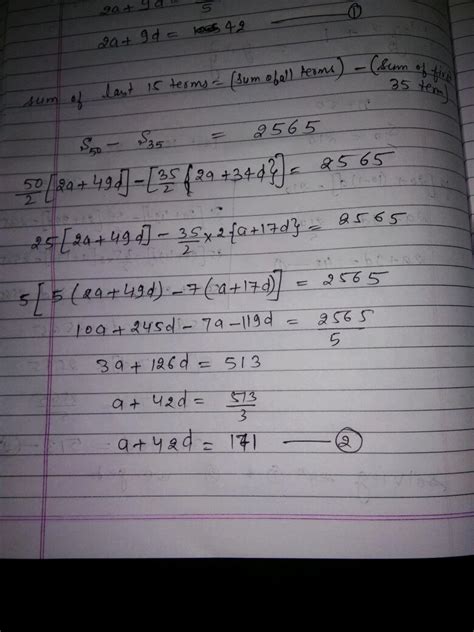 2a+9d = /5
2a+9d = 42 —— ①
Sum of last 15 terms = (sum of all terms) − (sum of first 35 term)
S50 − S35 = 2565
50/2 [2a+49d] − [35/2 {2a+34d}] = 2565
25 [2a+49d] − 35/2 × 2{a+17d} = 2565
5 [5 (2a+49d) − 7(a+17d)] = 2565
10a+245d − 7a − 119d = 2565/5
3a+126d = 513
a+42d = 513/3
a+42d = 171 —— ②